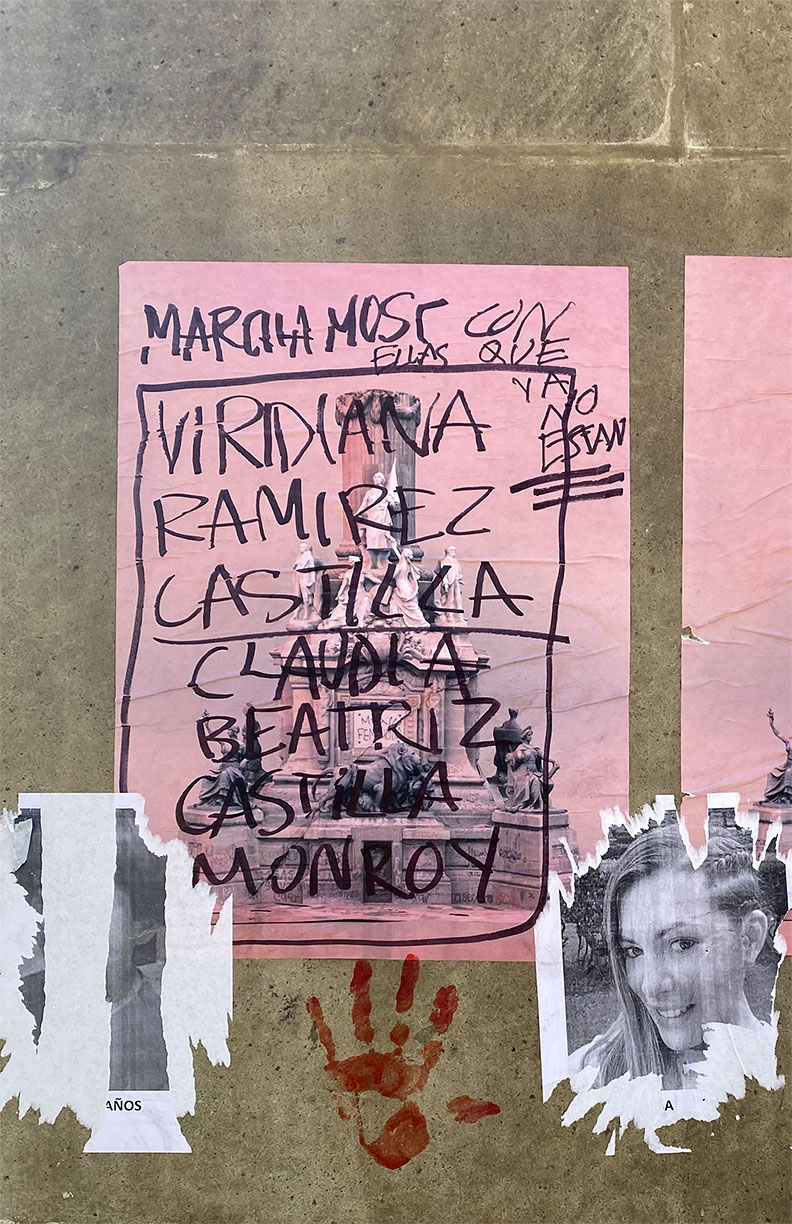 MARCHAMOS CON
ELLAS QUE
YA NO
ESTAN
VIRIDIANA
RAMIREZ
CASTILLA
CLAUDIA
BEATRIZ
CASTILLA
MONROY
AÑOS
A